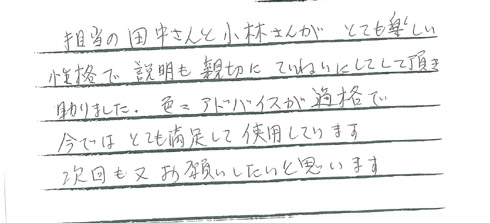 担当の田中さんと小林さんが とても楽しい
性格で 説明も親切に ていねいにしてして頂き
助りました。色々アドバイスが適格で
今では とても満足して使用しています
次回も又お願いしたいと思います